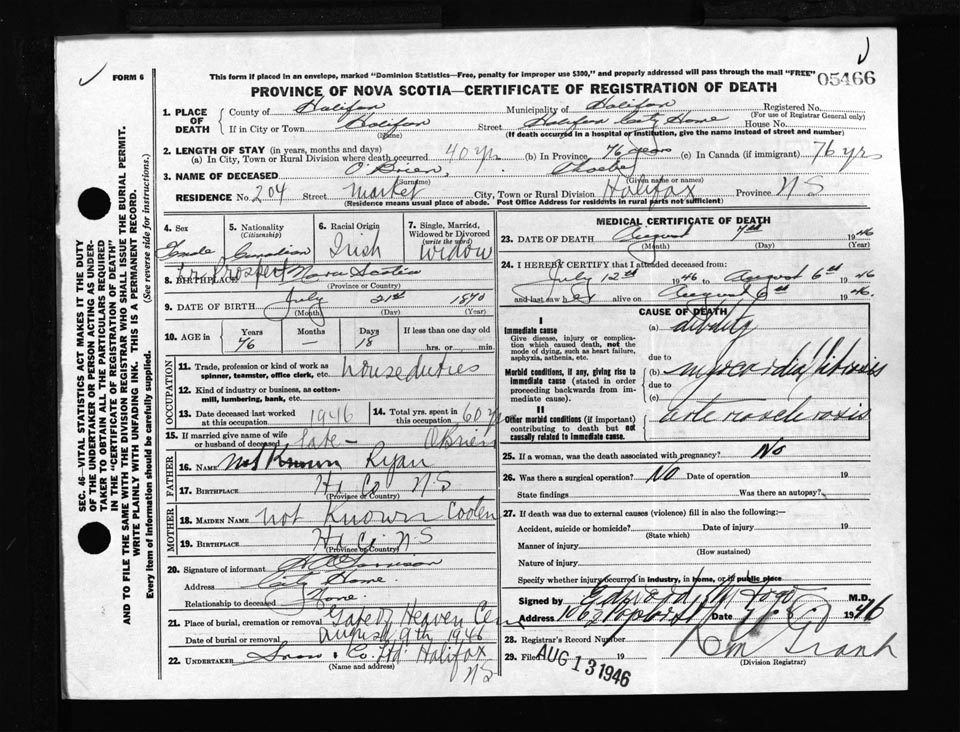 FORM 6
This form if placed in an envelope, marked "Dominion Statistics—Free, penalty for improper use $300," and properly addressed will pass through the mail "FREE"
05466
PROVINCE OF NOVA SCOTIA—CERTIFICATE OF REGISTRATION OF DEATH
1. PLACE OF DEATH
County of Halifax Municipality of Halifax Registered No.
(For use of Registrar General only)
If in City or Town Halifax Street Halifax City Home House No.
(Name) (If death occurred in a hospital or institution, give the name instead of street and number)
2. LENGTH OF STAY (in years, months and days)
(a) In City, Town or Rural Division where death occurred 40 yr (b) In Province 76 years (c) In Canada (if immigrant) 76 yrs
3. NAME OF DECEASED O'Brien, Phoebe
(Surname) (Given name or names)
RESIDENCE No. 204 Street Market City, Town or Rural Division Halifax Province N S
(Residence means usual place of abode. Post Office Address for residents in rural parts not sufficient)
4. Sex
Female
5. Nationality
(Citizenship)
Canadian
6. Racial Origin
Irish
7. Single, Married, Widowed or Divorced
(write the word)
Widow
8. BIRTHPLACE Prospect Nova Scotia
(Province or Country)
9. DATE OF BIRTH July 21st 1870
(Month) (Day) (Year)
10. AGE in
Years Months Days If less than one day old
76 — 18 hrs. or min.
OCCUPATION
11. Trade, profession or kind of work as spinner, teamster, office clerk, etc. house duties
12. Kind of industry or business, as cotton-mill, lumbering, bank, etc.
13. Date deceased last worked at this occupation 1946
14. Total yrs. spent in this occupation 60 yr
15. If married give name of wife or husband of deceased late - O'Brien
FATHER
16. NAME not Known Ryan
17. BIRTHPLACE Hx Co N S
(Province or Country)
MOTHER
18. MAIDEN NAME not Known Coolen
19. BIRTHPLACE Hx Co N S
(Province or Country)
20. Signature of informant
Address City Home.
Relationship to deceased None.
21. Place of burial, cremation or removal Gate of Heaven Cem
Date of burial or removal August 9th 1946
22. UNDERTAKER Snow & Co. Ltd Halifax
(Name and address)
N S
MEDICAL CERTIFICATE OF DEATH
23. DATE OF DEATH August 7th 1946
(Month) (Day) (Year)
24. I HEREBY CERTIFY that I attended deceased from:
July 12th 1946 to August 6th 1946
and last saw her alive on August 6th 1946.
CAUSE OF DEATH
I
Immediate cause
Give disease, injury or complication which caused death, not the mode of dying, such as heart failure, asphyxia, asthenia, etc.
(a) debility
due to
Morbid conditions, if any, giving rise to immediate cause (stated in order proceeding backwards from immediate cause).
(b) myocardial fibrosis
due to
(c)
II
Other morbid conditions (if important) contributing to death but not causally related to immediate cause.
arteriosclerosis
25. If a woman, was the death associated with pregnancy? No
26. Was there a surgical operation? No Date of operation 19
State findings Was there an autopsy?
27. If death was due to external causes (violence) fill in also the following:—
Accident, suicide or homicide? Date of injury 19
(State which)
Manner of injury
(How sustained)
Nature of injury
Specify whether injury occurred in industry, in home, or in public place
Signed by Edward M.D.
Date 1946
28. Registrar's Record Number
29. Filed AUG 13 1946 19
(Division Registrar)
SEC. 46—VITAL STATISTICS ACT MAKES IT THE DUTY
OF THE UNDERTAKER OR PERSON ACTING AS UNDER-
TAKER TO OBTAIN ALL THE PARTICULARS REQUIRED
IN THE "CERTIFICATE OF REGISTRATION OF DEATH"
AND TO FILE THE SAME WITH THE DIVISION REGISTRAR WHO SHALL ISSUE THE BURIAL PERMIT.
WRITE PLAINLY WITH UNFADING INK. THIS IS A PERMANENT RECORD.
Every item of information should be carefully supplied. (See reverse side for instructions.)